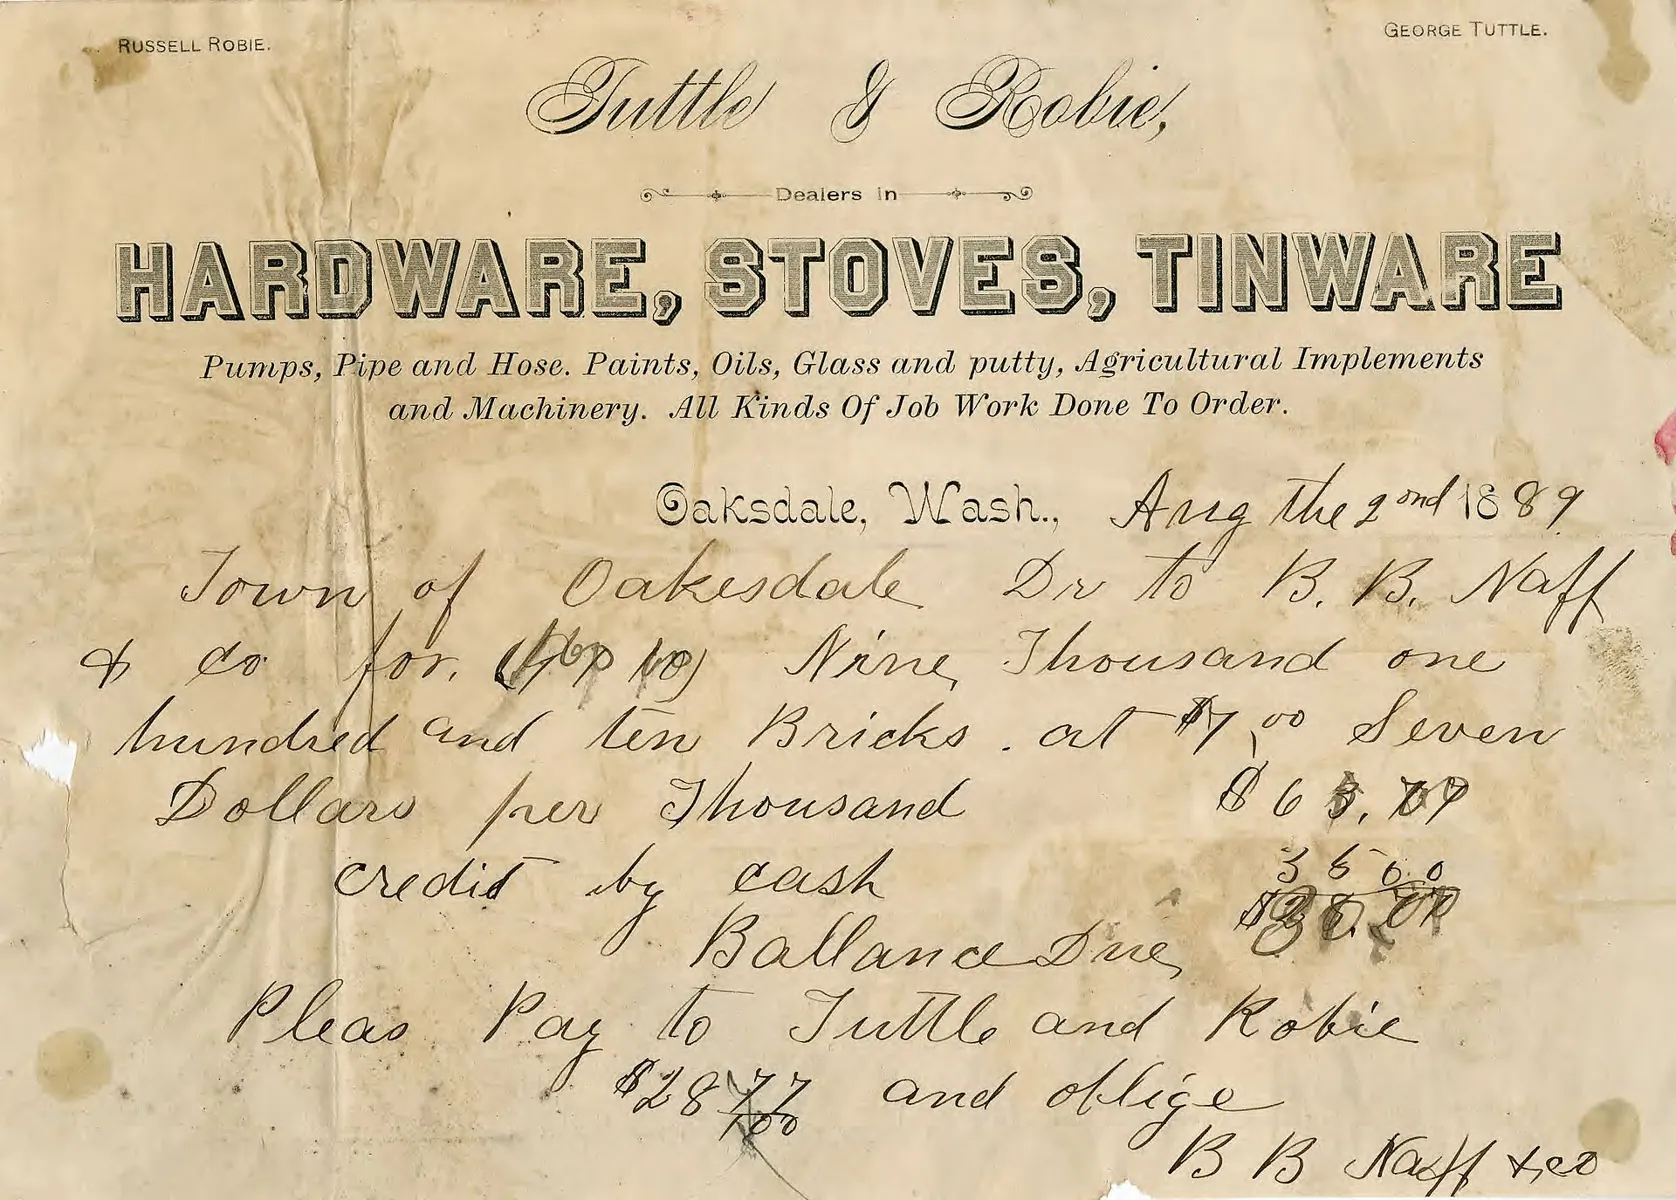 RUSSELL ROBIE.
GEORGE TUTTLE.
Tuttle & Robie,
Dealers in
HARDWARE, STOVES, TINWARE
Pumps, Pipe and Hose. Paints, Oils, Glass and putty, Agricultural Implements
and Machinery. All Kinds Of Job Work Done To Order.
Oaksdale, Wash., Aug the 2ond 1889
Town of Oakesdale Dr to B. B. Naff
& co for. Nine Thousand one
hundred and ten Bricks. at $7.00 Seven
Dollars per Thousand
credit by cash 35 00
Ballance Due
Pleas Pay to Tuttle and Robie
$28 77/100 and oblige
B B Naff & co